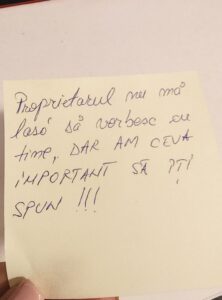 Proprietarul nu mă
lasă să vorbesc cu
tine, DAR AM CEVA
IMPORTANT SĂ ÎȚI
SPUN !!!